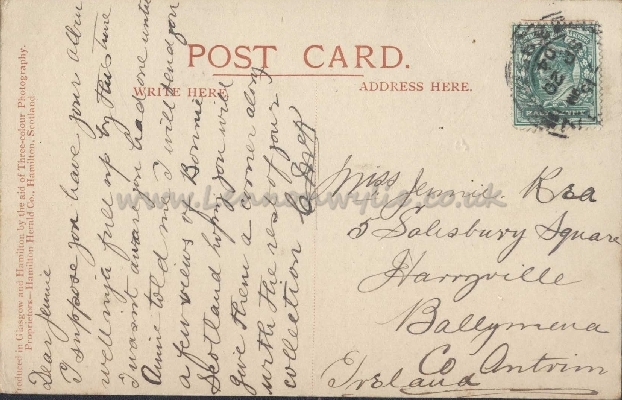 POST CARD.
WRITE HERE
ADDRESS HERE.
Produced in Glasgow and Hamilton by the aid of Three-colour Photography.
Proprietors—Hamilton Herald Co., Hamilton, Scotland
Dear Jennie
I suppose you have your album
well nigh full up by this time
I wasnt aware you had one until
Annie told me I will send you
a few views of Bonnie
Scotland hope you will
give them a corner along
with the rest of your
collection
Miss Jennie Rea
5 Salesbury Square
Harryville
Ballymena
Co Antrim
Ireland
www.lennonwylie.co.uk